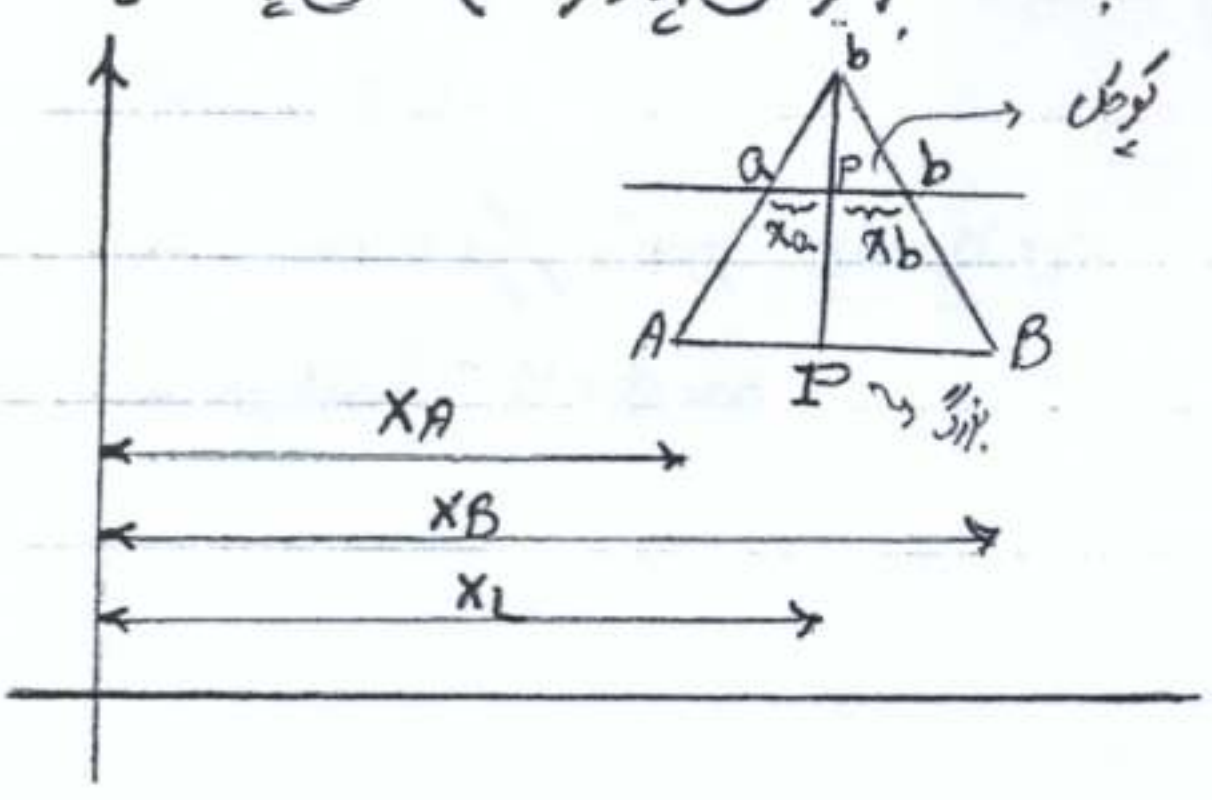 b
کوچک
a P b
xa xb
A B
P بزرگ
XA
XB
XL